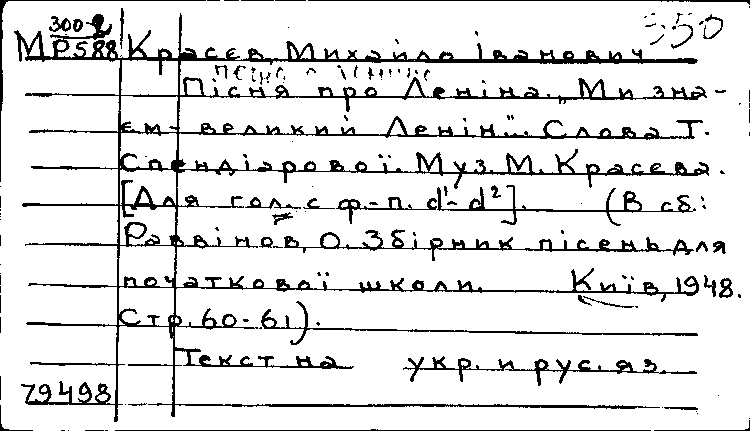 300-2
350
МР588 Красєв, Михайло Іванович
Пісня про Леніна. „Ми зна-
єм - великий Ленін". Слова Т.
Спендіарової. Муз. М. Красєва.
[Для гол. с ф.-п. d¹-d²]. (В сб.:
Раввінов, О. Збірник пісень для
початкової школи. Київ, 1948.
Стр. 60-61).
Текст на укр. и рус. яз.
79498